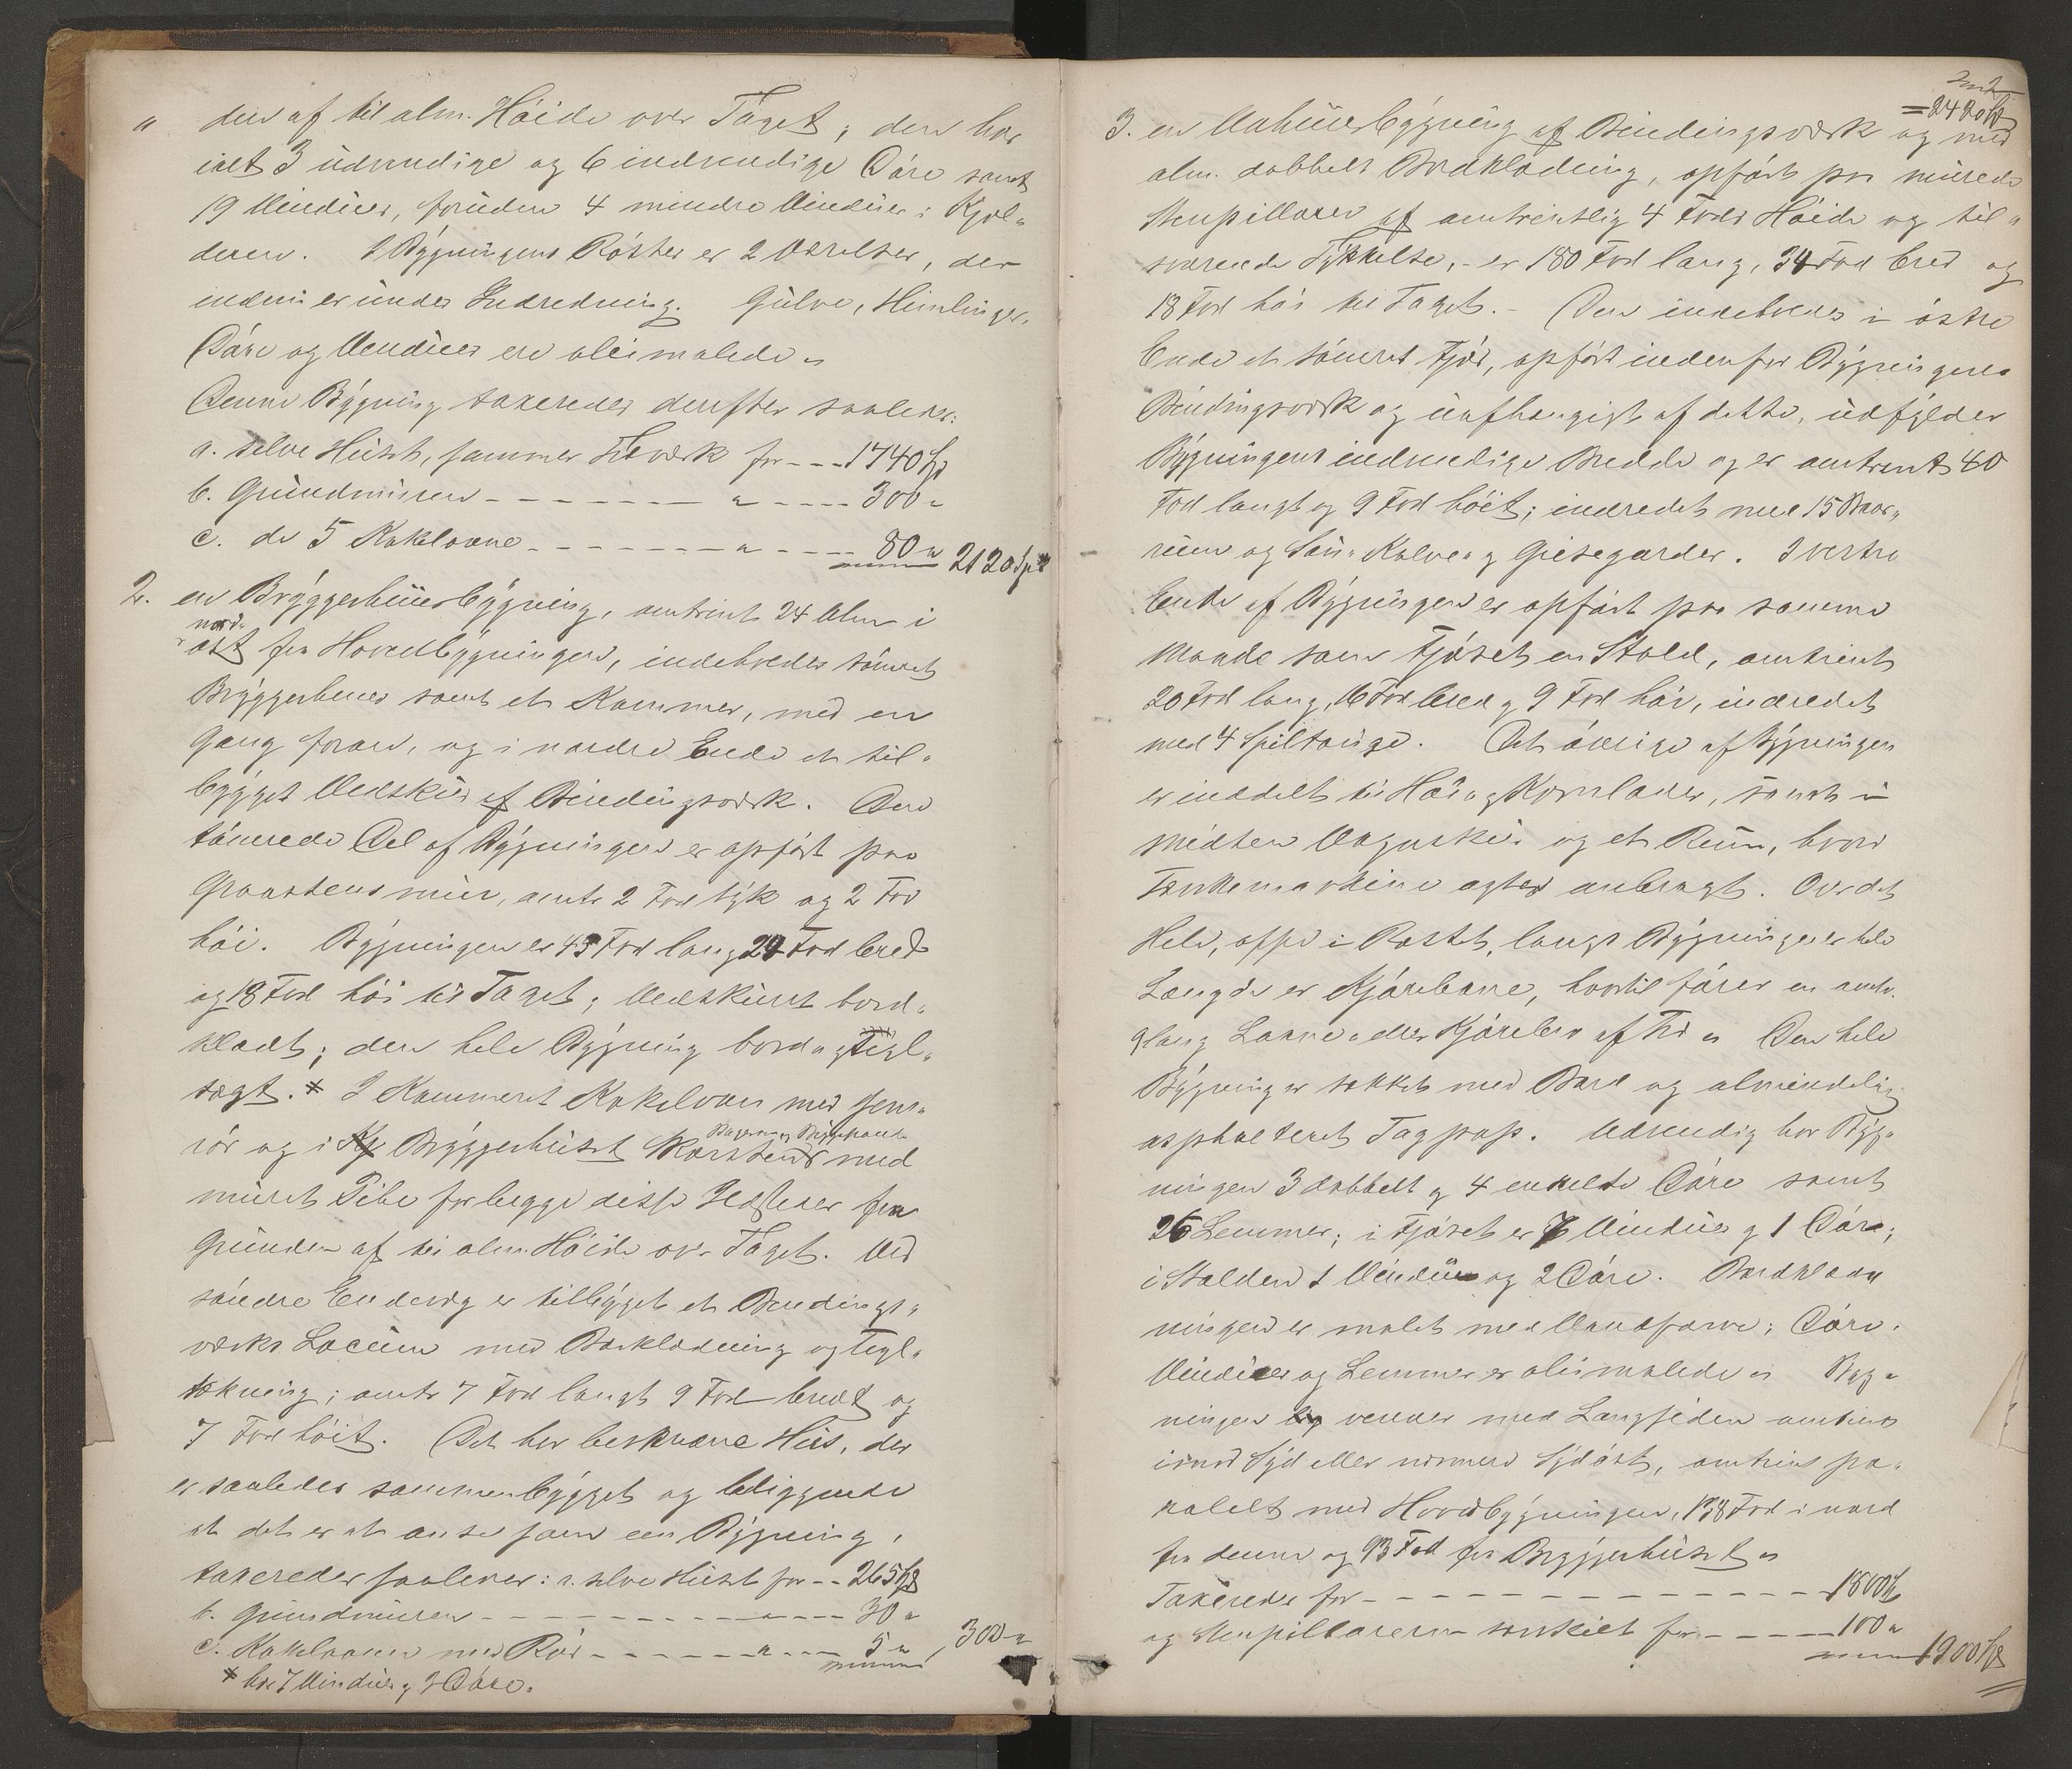 " den af til alm. Höide over Taget; den har
ialt 3 udvendige og 6 indvendige Döre samt
19 Vinduer, foruden 4 mindre Vinduer i Kjæl-
deren. I Bygningens Röster er 2 Værelser, der
endnu er under Indredning. Gulve, Himlinger,
Döre og Vinduer ere oliemalede "
Denne Bygning taxeredes derefter saaledes:
a. selve Huset, sammes Træværk for --- 1740 Spd
b. Grundmuren - - - - - - - " - - - - 300 "
c. de 5 Kakelovne - - - - - - - " - - - - 80 " 2120 Spd
2. en Bryggerhuusbygning, omtrent 24 Alen i
nord-
öst fra Hovedbygningen, indeholder tömret
Bryggerhuus samt et Kammer, med en
Gang foran, og i nordre Ende et til-
bygget Vedskuur af Bindingsværk. Den
tömrede Del af Bygningen er opfört paa
Graastensmuur, omtr. 2 Fod tyk og 2 Fod
höi. Bygningen er 43 Fod lang 24 Fod bred
og 18 Fod höi til Taget; Vedskuret bord-
klædt; den hele Bygning bord og Tegl-
tægt. * I Kammeret Kakelovn med Jern-
rör og i Kj Bryggerhuset Bagerovn og Bryggepande
Skorsten med
muret Pibe for begge disse Ildsteder fra
Grunden af til alm. Höide over Taget. Ved
söndre Endevæg er tilbygget et Bindings-
værks Locum med Bordklædning og Tegl-
tækning; omtr. 7 Fod langt 9 Fod bredt og
7 Fod höit. Det her beskrevne Huus, der
er saaledes sammenbygget og beliggende
at det er at anse som een Bygning,
taxeredes saaledes: a. selve Huset for -- 265 Spd
b. Grundmuren - - - - - - - - " - - - 30 "
c. Kakelovnen med Rör - - - - - - " - - - 5 " 300 "
* har 7 Vinduer og 3 Döre.
= 2420 Spd
3. en Udhuusbygning af Bindingsværk og med
alm. dobbelt Bordklædning, opfört paa murede
Steenpillarer af omtrentlig 4 Fods Höide og til-
svarende Tykkelse, - er 180 Fod lang, 34 Fod bred og
18 Fod höi til Taget. - Den indeholder i östre
Ende et tömret Fjös, opfört indenfor Bygningens
Bindingsværk og uafhængigt af dette, udfylder
Bygningens indvendige Bredde og er omtrent 40
Fod langt og 9 Fod höit; indredet med 15 Baas-
rum og Sau- Kalve og Grisegarder. I vestre
Ende af Bygningen er opfört paa samme
Maade som Fjöset en Stald, omtrent
20 Fod lang, 16 Fod bred og 9 Fod höi, indredet
med 4 Spiltouge. Det övrige af Bygningen
er inddelt til Hö- og Kornlader, samt i
Midten Vognskur og et Rum, hvori
Tærskemaskine agtes anbragt. Over det
Hele, oppe i Röstet, langs Bygningens hele
Længde er Kjörebane, hvortil förer en omtr.
lang Laane- eller Kjörebro af Træ " Den hele
Bygning er tækket med Bord og almindelig
asphalteret Tagpap. Udvendig har Byg-
ningen 3 dobbelt og 4 enkelte Döre samt
26 Lemmer; i Fjöset er 7 Vinduer og 1 Döre;
i Stalden 1 Vindue og 2 Döre. Bordklæd-
ningen er malet med Vandfarve; Döre.
Vinduer og Lemmer er oliemalede " Byg-
ningen vender med Langsiden omtrent
imod Syd eller nærmere Sydöst, omtrent pa-
rallelt med Hovedbygningen, 138 Fod i nord
fra denne og 93 Fod fra Bryggerhuset "
Taxeredes for - - - - - - - - - - - - - - 1800 Spd
og Steenpillarerne særskilt for - - - - - 100 "
1900 Spd